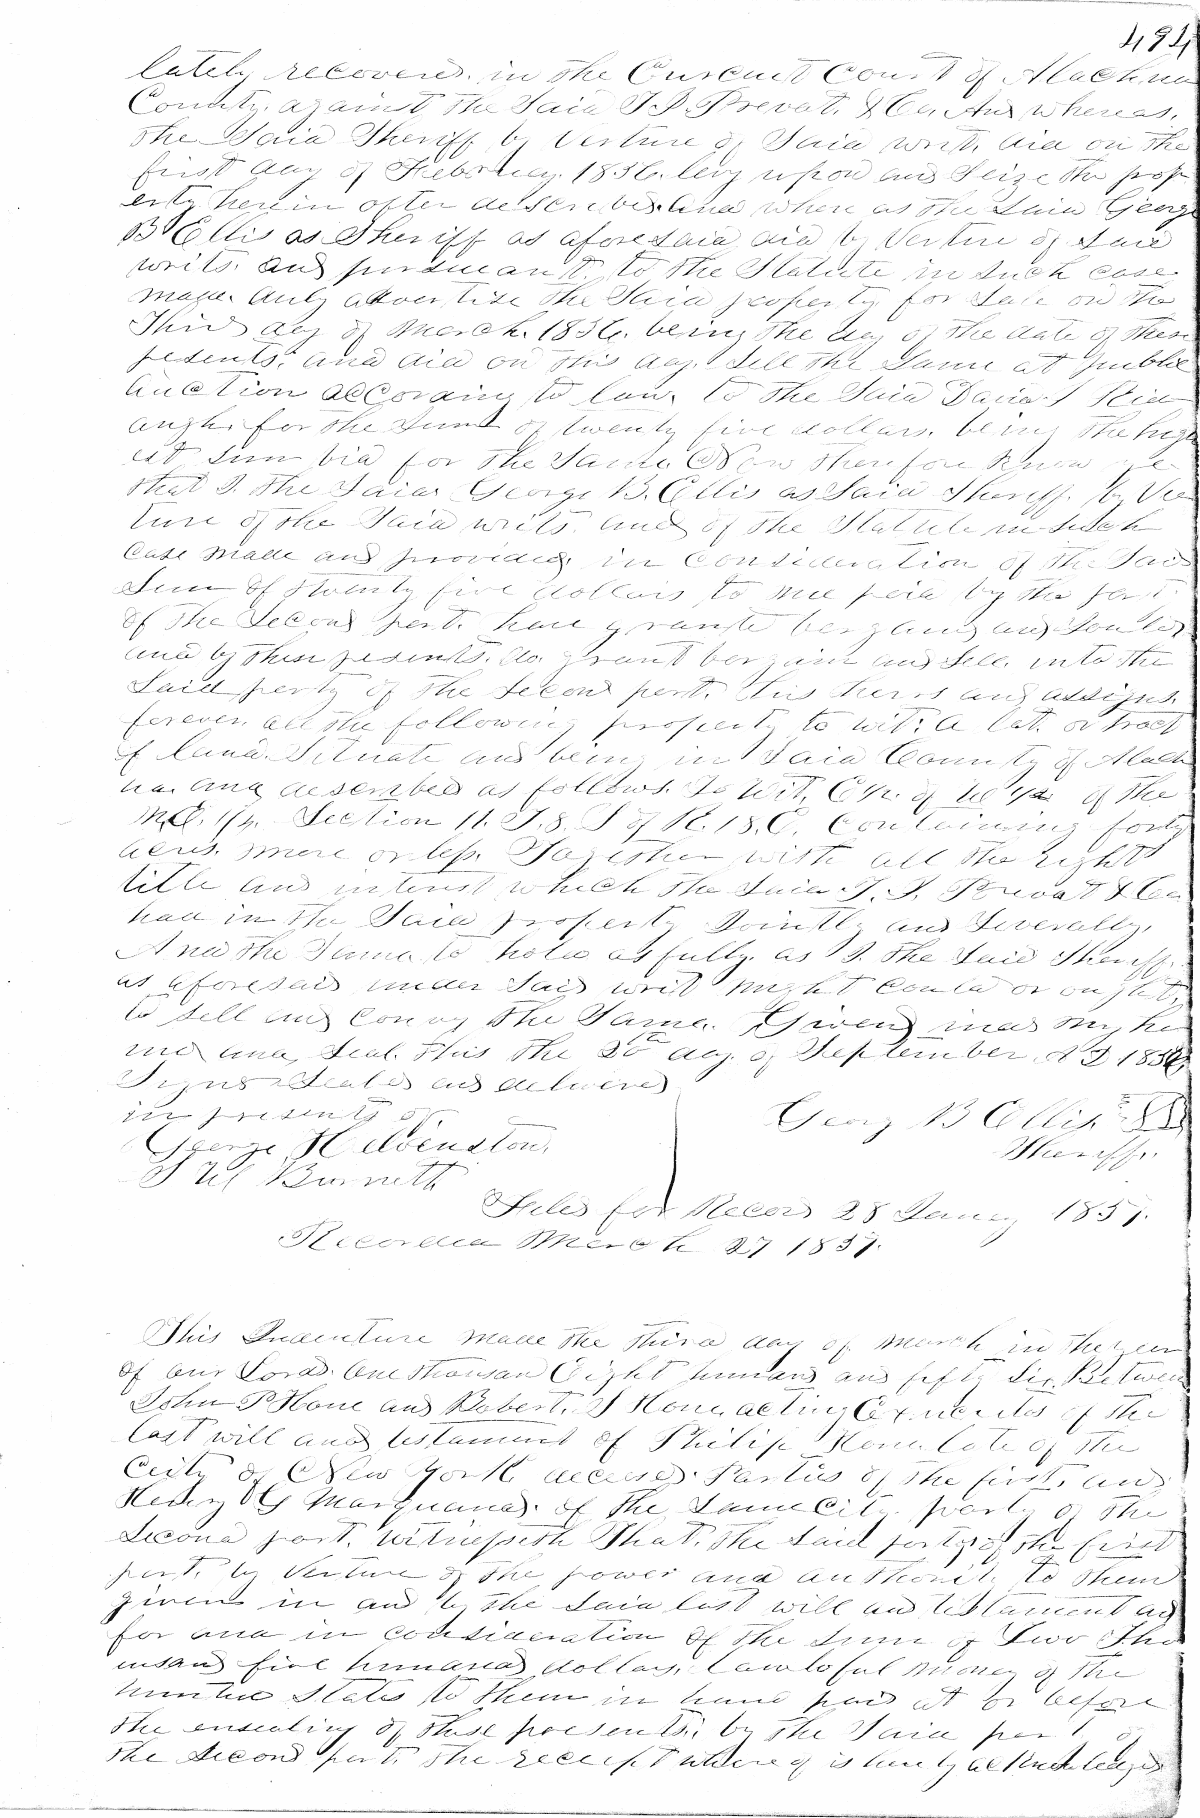 494
lately recovered in the Curcuit Court of Alachua
County against the Said T. J. Prevat & Co. And whereas
the Said Sheriff by Verture of Said writ did on the
first day of February 1856 levy upon and Seize the prop
erty herein after described And where as the Said George
B Ellis as Sheriff as aforesaid did by Verture of Said
writs and pursueant to the Statute in Such case
made duly advertise the Said propety for Sale on the
Third day of March 1856 being the day of the date of these
pesents and did on this day Sell the Same at public
Auction according to law to the Said David
for the Sum of twenty five dollars being the high
est Sum bid for the Same Now therefore know ye
that I the Said George B. Ellis as Said Sheriff by Ver
ture of the Said writs and of the Statute in Such
Case made and provided in consideration of the Said
Sum of twenty five dollars to mee paid by the part
of the Second part have and Sould
and by these pesents do grant bargain and Sell unto the
Said party of the Second part his heirs and assigns
forever all the following property to wit: A lot or tract
of land Situate and being in Said County of Alach
ua and described as follows To Wit, of the
Section 11. T. 8. S of R. 18. E. Containing forty
acres more or less. Together with all the right
title and interest which the Said T. J. Prevat & Co
had in the Said property Jointly and Severally.
And the Same to hold as fully as I the Said Sheriff
as aforesaid under Said writ might could or ought
to Sell and convey the Same. Given under my ha
nd and Seal this the 20th day of September A D 1856
Signed Sealed and delivered
in presents of
Georg B Ellis
George Helvenston
Sheriff.
Burnett
Filed for Record 28 Januy 1857.
Recorded March 27 1857.
This Indenture made the third day of March in the year
of our Lord One thousan Eight hundred and fifty Six Between
John P Hone and Robert S Hone acting Executos of the
last will and testament of Philip Hone late of the
City of New York deceased Parties of the first and
Henry G Marquand of the Same City party of the
Second part, witnesseth That the Said party of the first
part by Verture of the power and authorit to them
given in and by the Said last will and testament and
for and in consideration of the Sum of Two Tho
usand five hundred dollars lawful money of the
United States to them in hand paid at or before
the ensealing of these presents by the Said part of
the Second part the receipt where of is hereby acknowledged